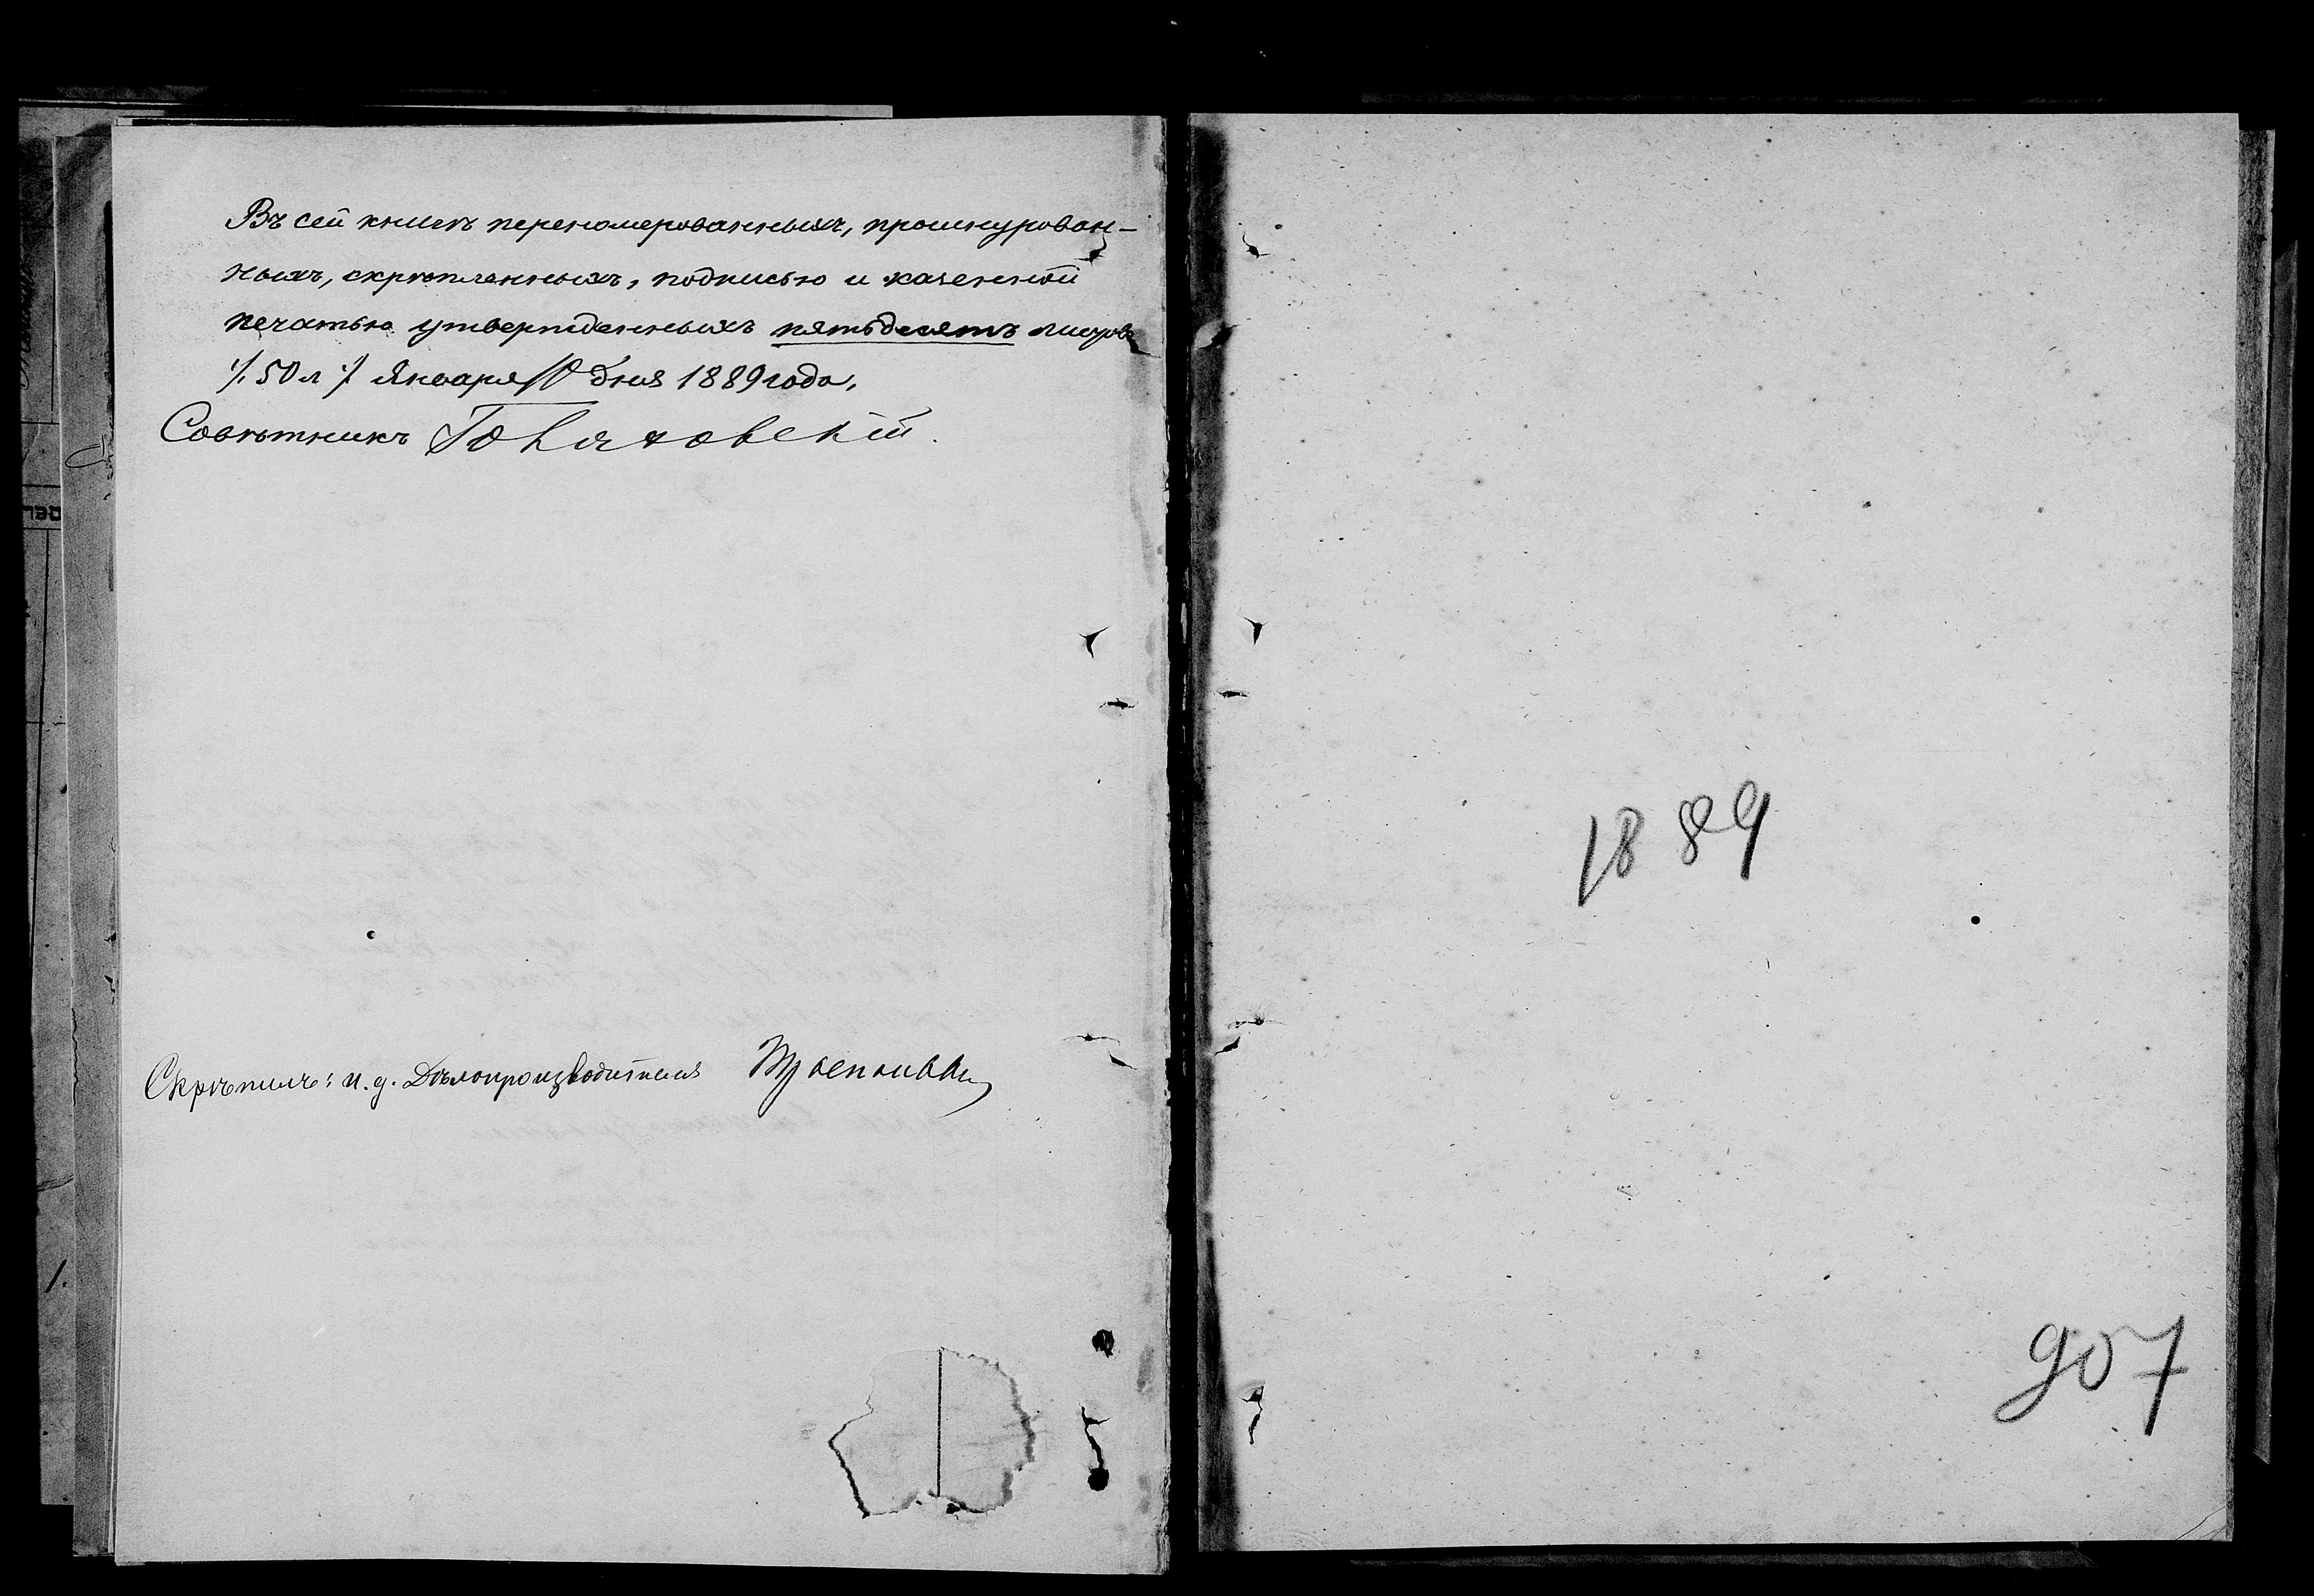 Въ сей книгѣ переномерованныхъ, прошнурован-
ныхъ, скрѣпленныхъ, подписью и казенной
печатью утвержденныхъ пятьдесятъ листовъ
/. 50 л ./. Января дня 1889 года.
Совѣтникъ
Скрѣпилъ: и. д. Дѣлопроизводителя
1889
907